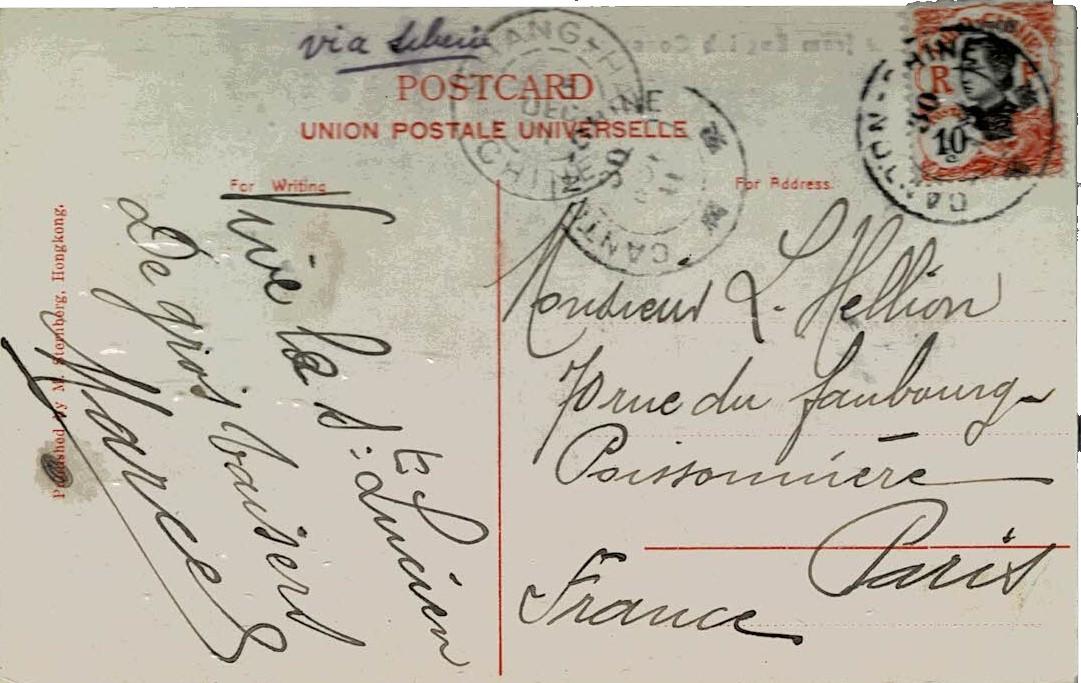 via Sibérie
POSTCARD
UNION POSTALE UNIVERSELLE
For Writing
For Address.
Vive la St. Lucien
De gros baisers
Marcel
Published by M. Sternberg, Hongkong.
Monsieur L. Hellion
70 rue du faubourg
Poissonnière
Paris
France
CANTON-CHINE
30
CANTON-CHINE
30
CHINE
DEC
RF
10